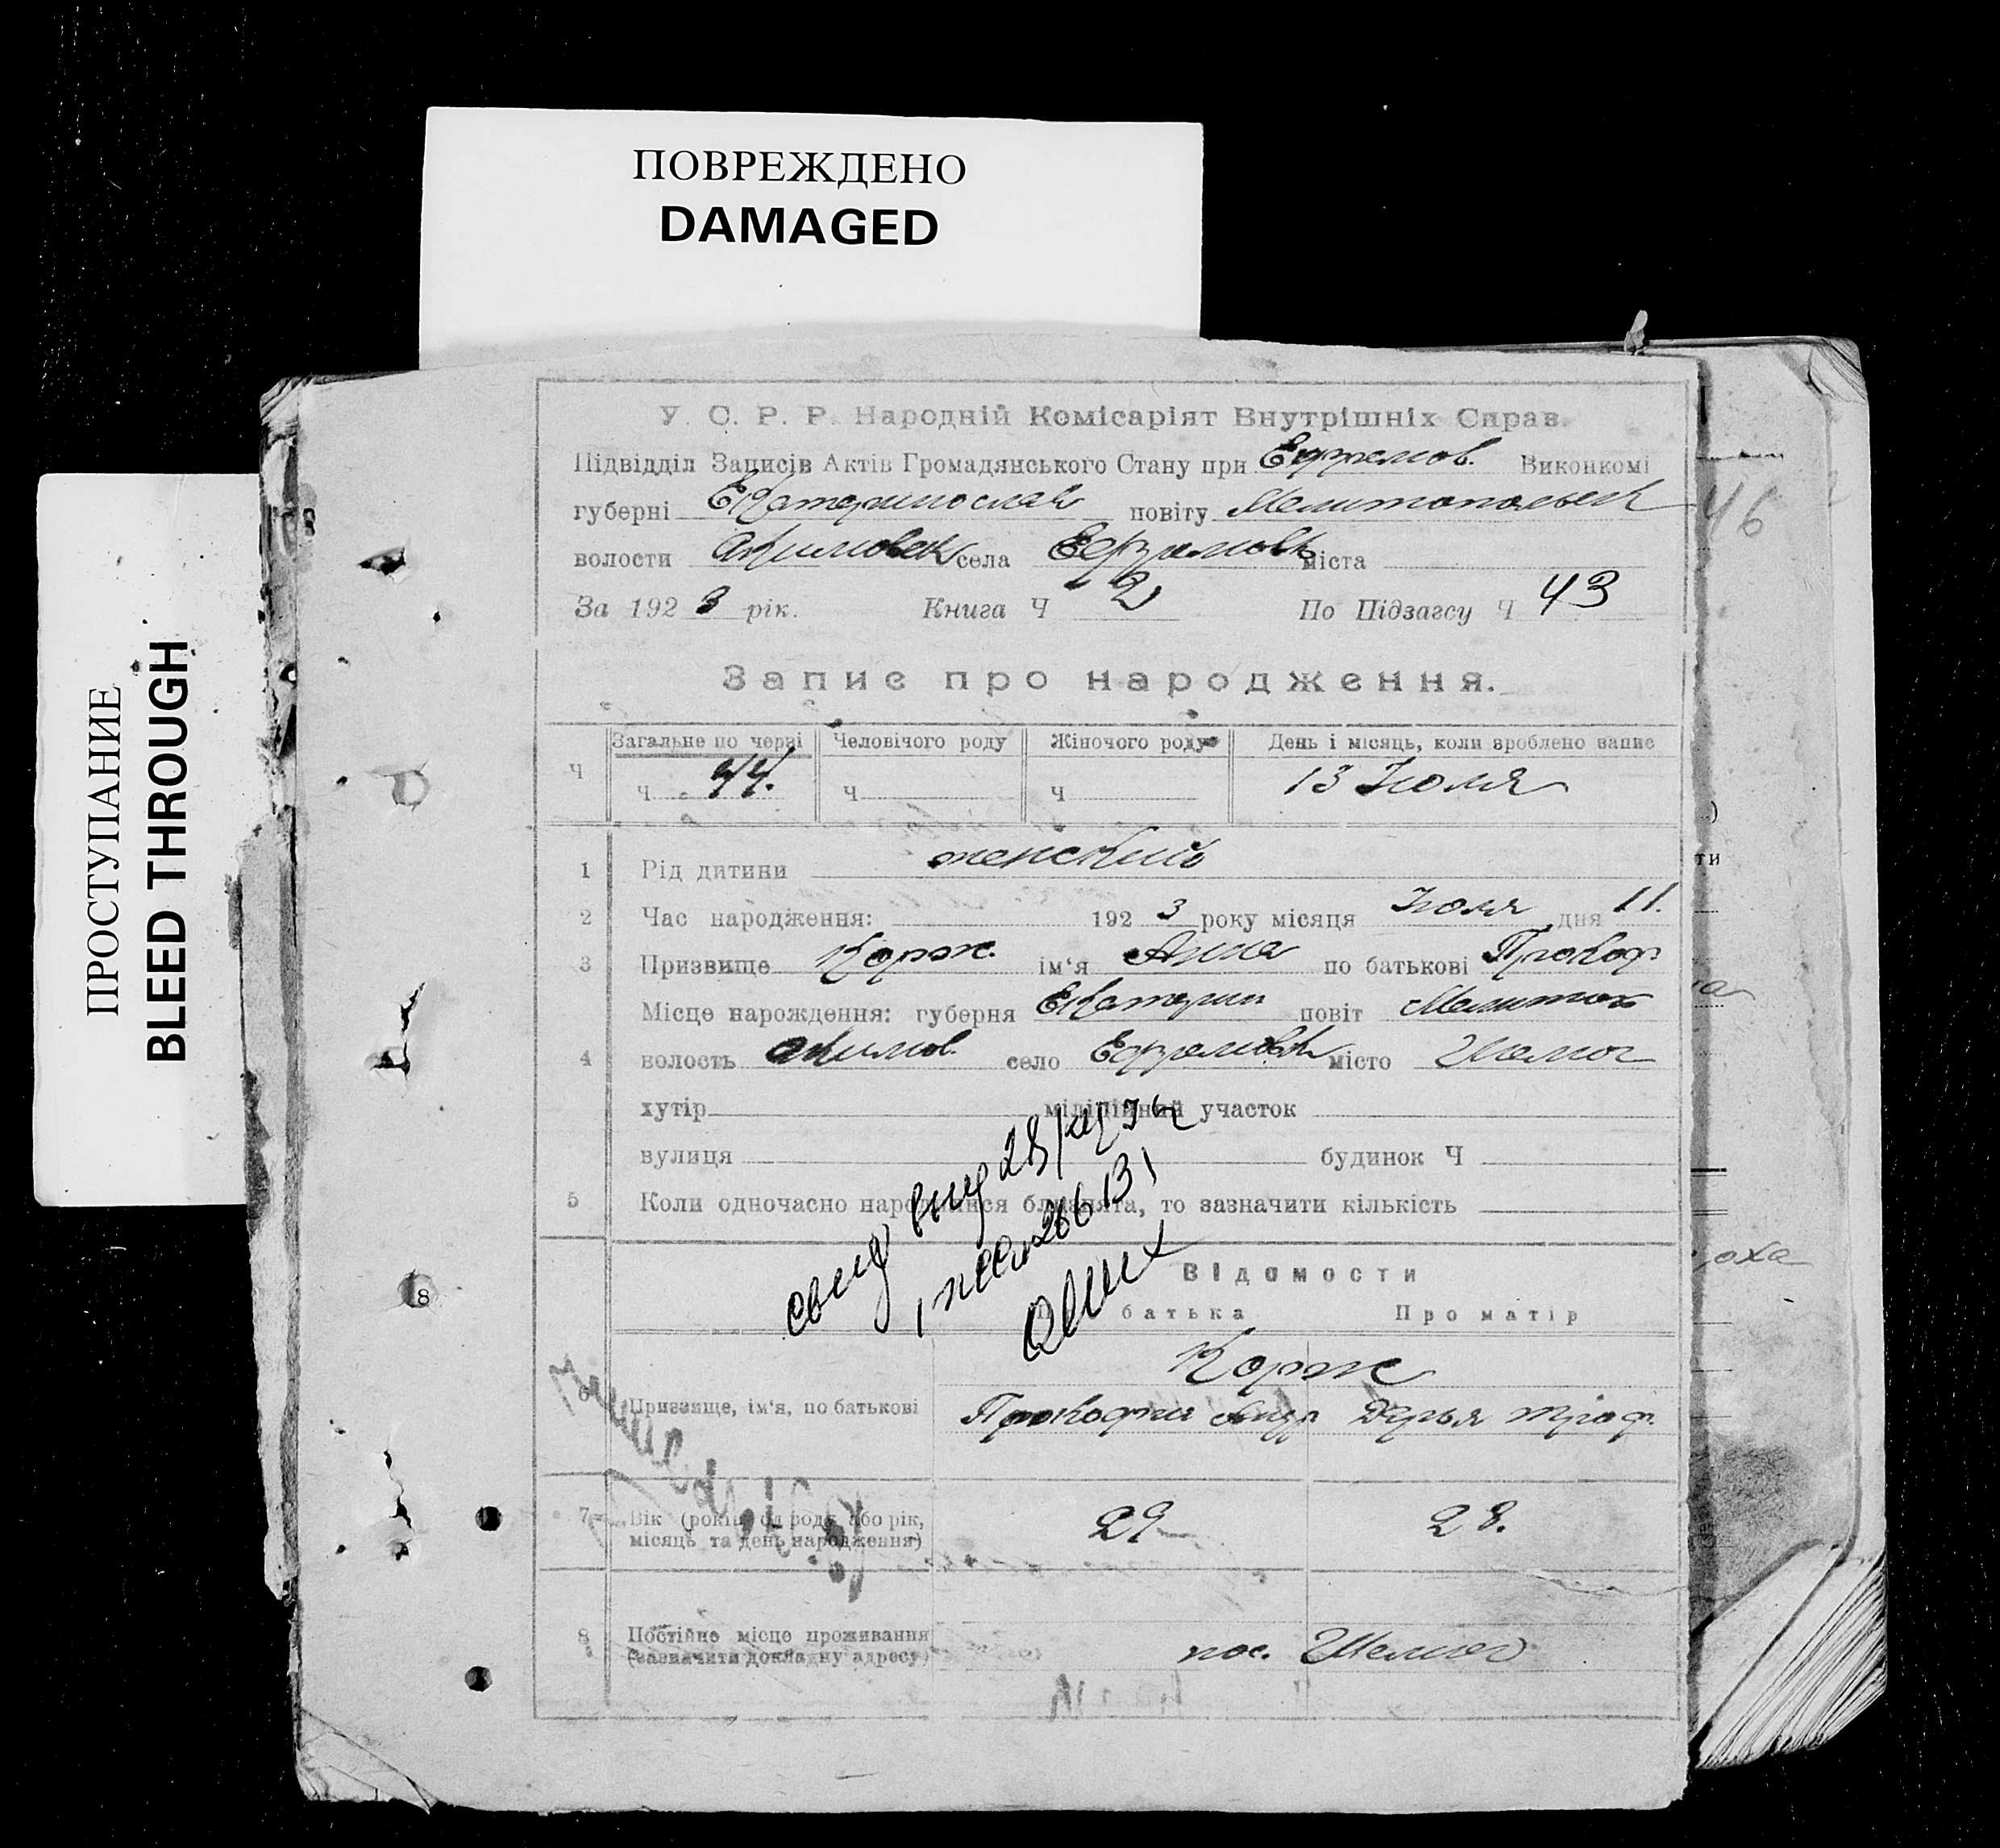 ПОВРЕЖДЕНО
DAMAGED
ПРОСТУПАНИЕ
BLEED THROUGH
У. С. Р. Р. Народній Комісаріят Внутрішніх Справ.
Підвідділ Записів Актів Громадянського Стану при Ефремов. Виконкомі
губерні Екатеринослав повіту Мелитопольск
волости Акимовск села Ефремовк міста
За 1923 рік. Книга Ч 2 По Підзагсу Ч 43
46
Запис про народження.
Загальне по черві Человічого роду Жіночого роду День і місяць, коли зроблено запис
Ч Ч 44. Ч Ч 13 Июля
1 Рід дитини женский
2 Час народження: 1923 року місяця Июля дня 11.
3 Призвище Корж. ім'я Анна по батькові Прокоф.
Місце нарождення: губерня Екатерин повіт Мелитоп
4 волость Акимов. село Ефремовк місто
хутір міліційний участок
вулиця будинок Ч
5 Коли одночасно народилися близнята, то зазначити кількість
Відомости
батька Про матір
Корж
6 Призвище, ім'я, по батькові Прокофий Андр Дарья Троф.
7 Вік (років од роду або рік, 29 28.
місяць та день народження)
8 Постійне місце проживання пос.
(зазначити докладну адресу)
8
оха